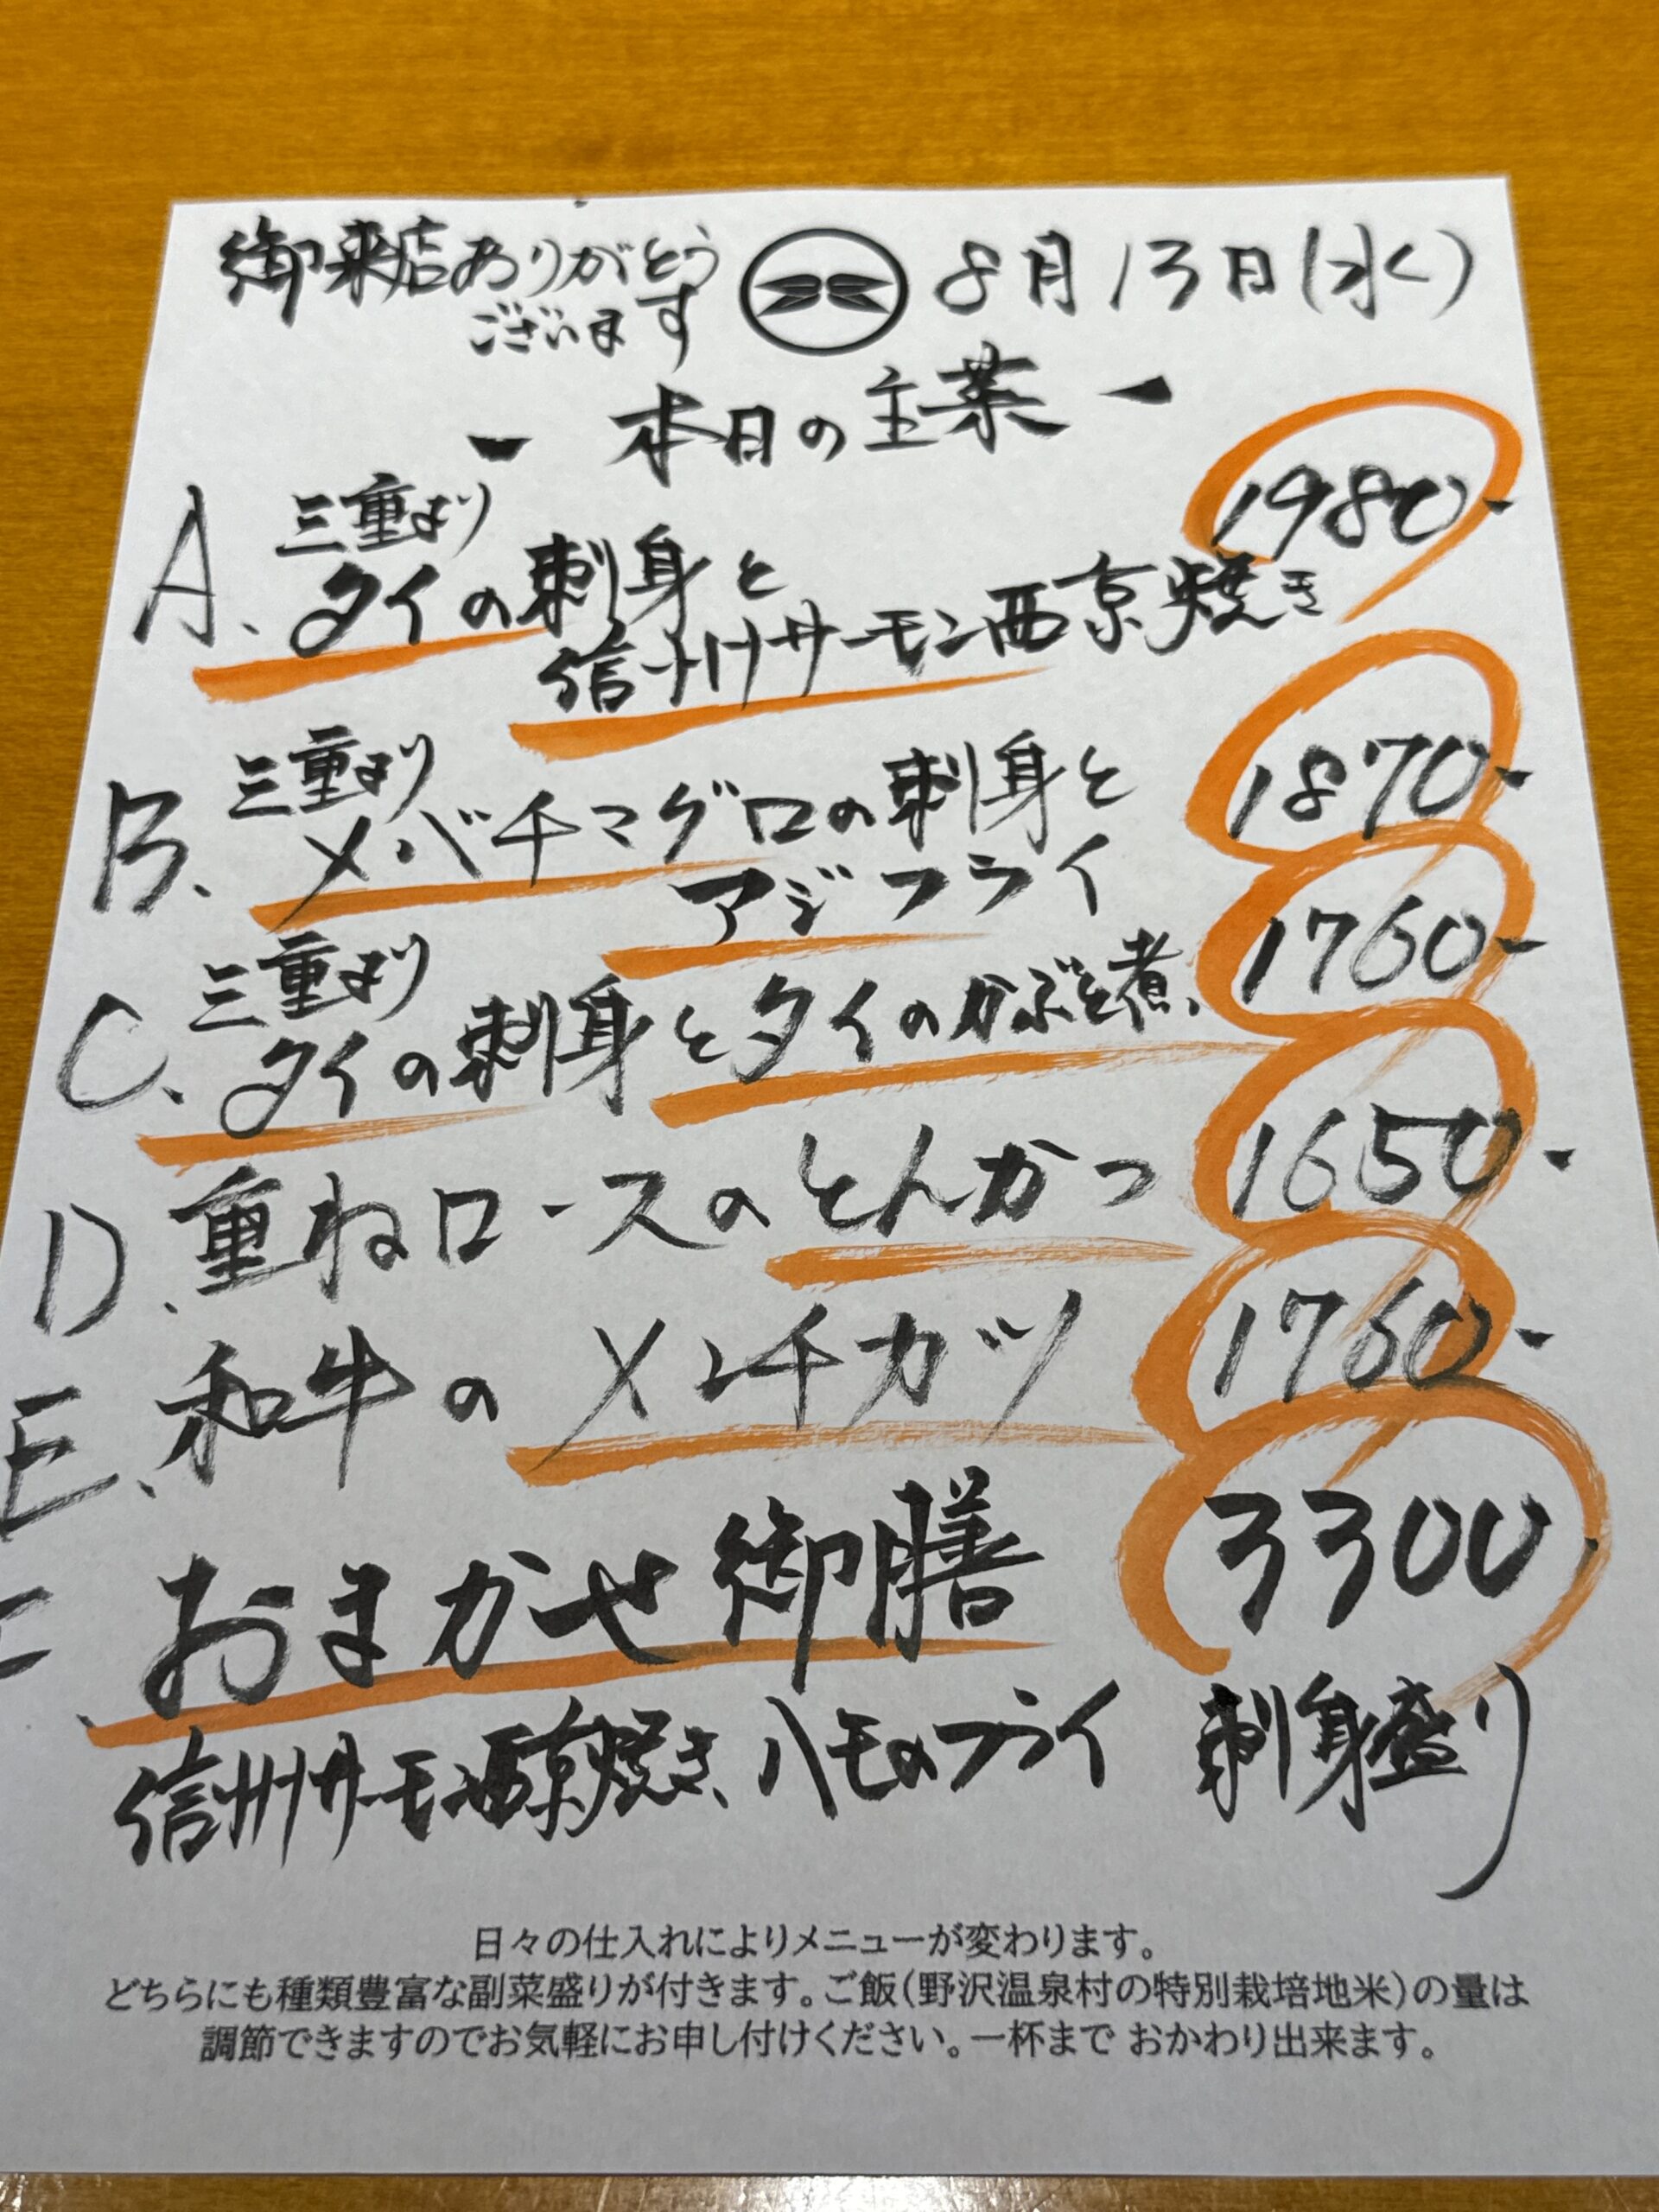 御来店ありがとう
ございます
8月13日(水)
- 本日の主菜 -
A. 三重より
タイの刺身と
信州サーモン西京焼き
1980-
B. 三重より
メバチマグロの刺身と
アジフライ
1870-
C. 三重より
タイの刺身とタイのかぶと煮
1760-
D. 重ねロースのとんかつ
1650-
E. 和牛のメンチカツ
1760-
おまかせ御膳
3300
信州サーモン西京焼き、ハモのフライ 刺身盛り
日々の仕入れによりメニューが変わります。
どちらにも種類豊富な副菜盛りが付きます。ご飯(野沢温泉村の特別栽培地米)の量は
調節できますのでお気軽にお申し付けください。一杯まで おかわり出来ます。